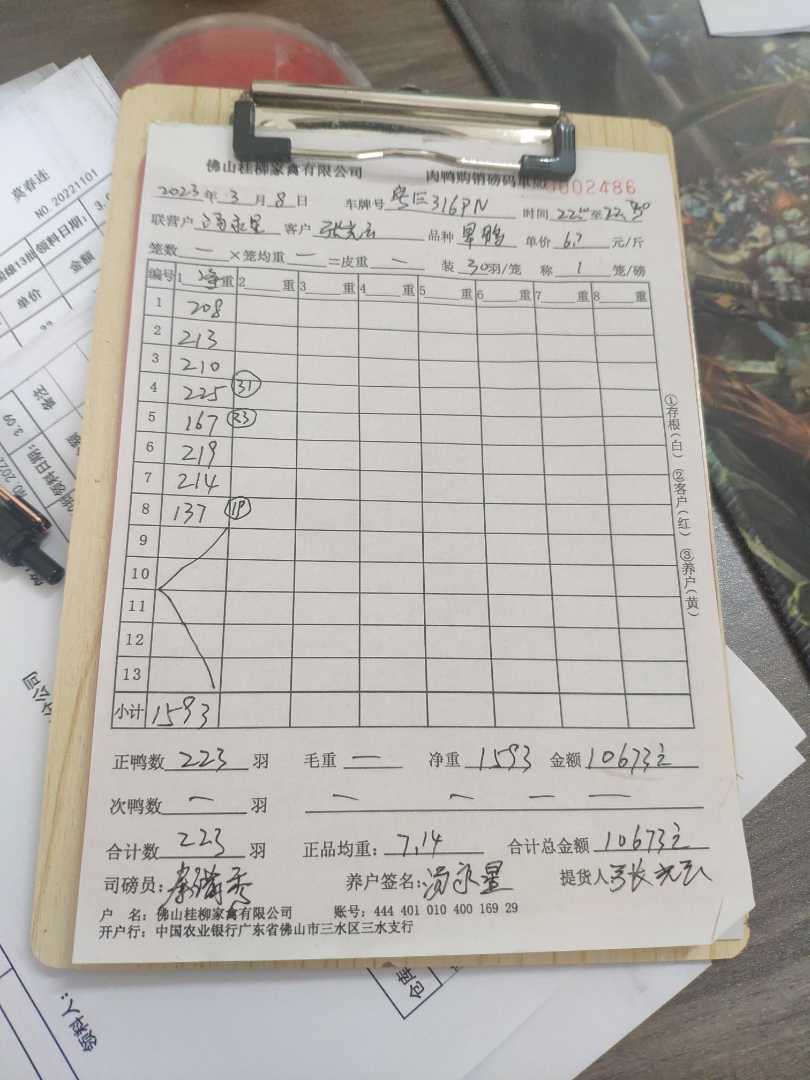 佛山桂柳家禽有限公司 肉鸭购销磅码单 0002486
2023年3月8日 车牌号 316PN 时间 22 至22
联营户 冯永星 客户 张光云 品种 单价 6.7 元/斤
笼数 一 ×笼均重 一 =皮重 一 装 30羽/笼 称 1 笼/磅
编号 1 净重 2 重 3 重 4 重 5 重 6 重 7 重 8 重
1 208
2 213
3 210
4 225 31
5 167 23
6 219
7 214
8 137 19
9
10
11
12
13
小计 1593
正鸭数 223 羽 毛重 一 净重 1593 金额 10673元
次鸭数 一 羽 一 一 一 一
合计数 223 羽 正品均重: 7.14 合计总金额 10673元
司磅员: 养户签名: 冯永星 提货人 张光云
户 名: 佛山桂柳家禽有限公司 账号: 444 401 010 400 169 29
开户行: 中国农业银行广东省佛山市三水区三水支行
①存根(白) ②客户(红) ③养户(黄)
莫春连
NO 20221101
领料日期:
3.0
金额
单价
备注
3.09
领料日期:
公司
领料人:
仓库